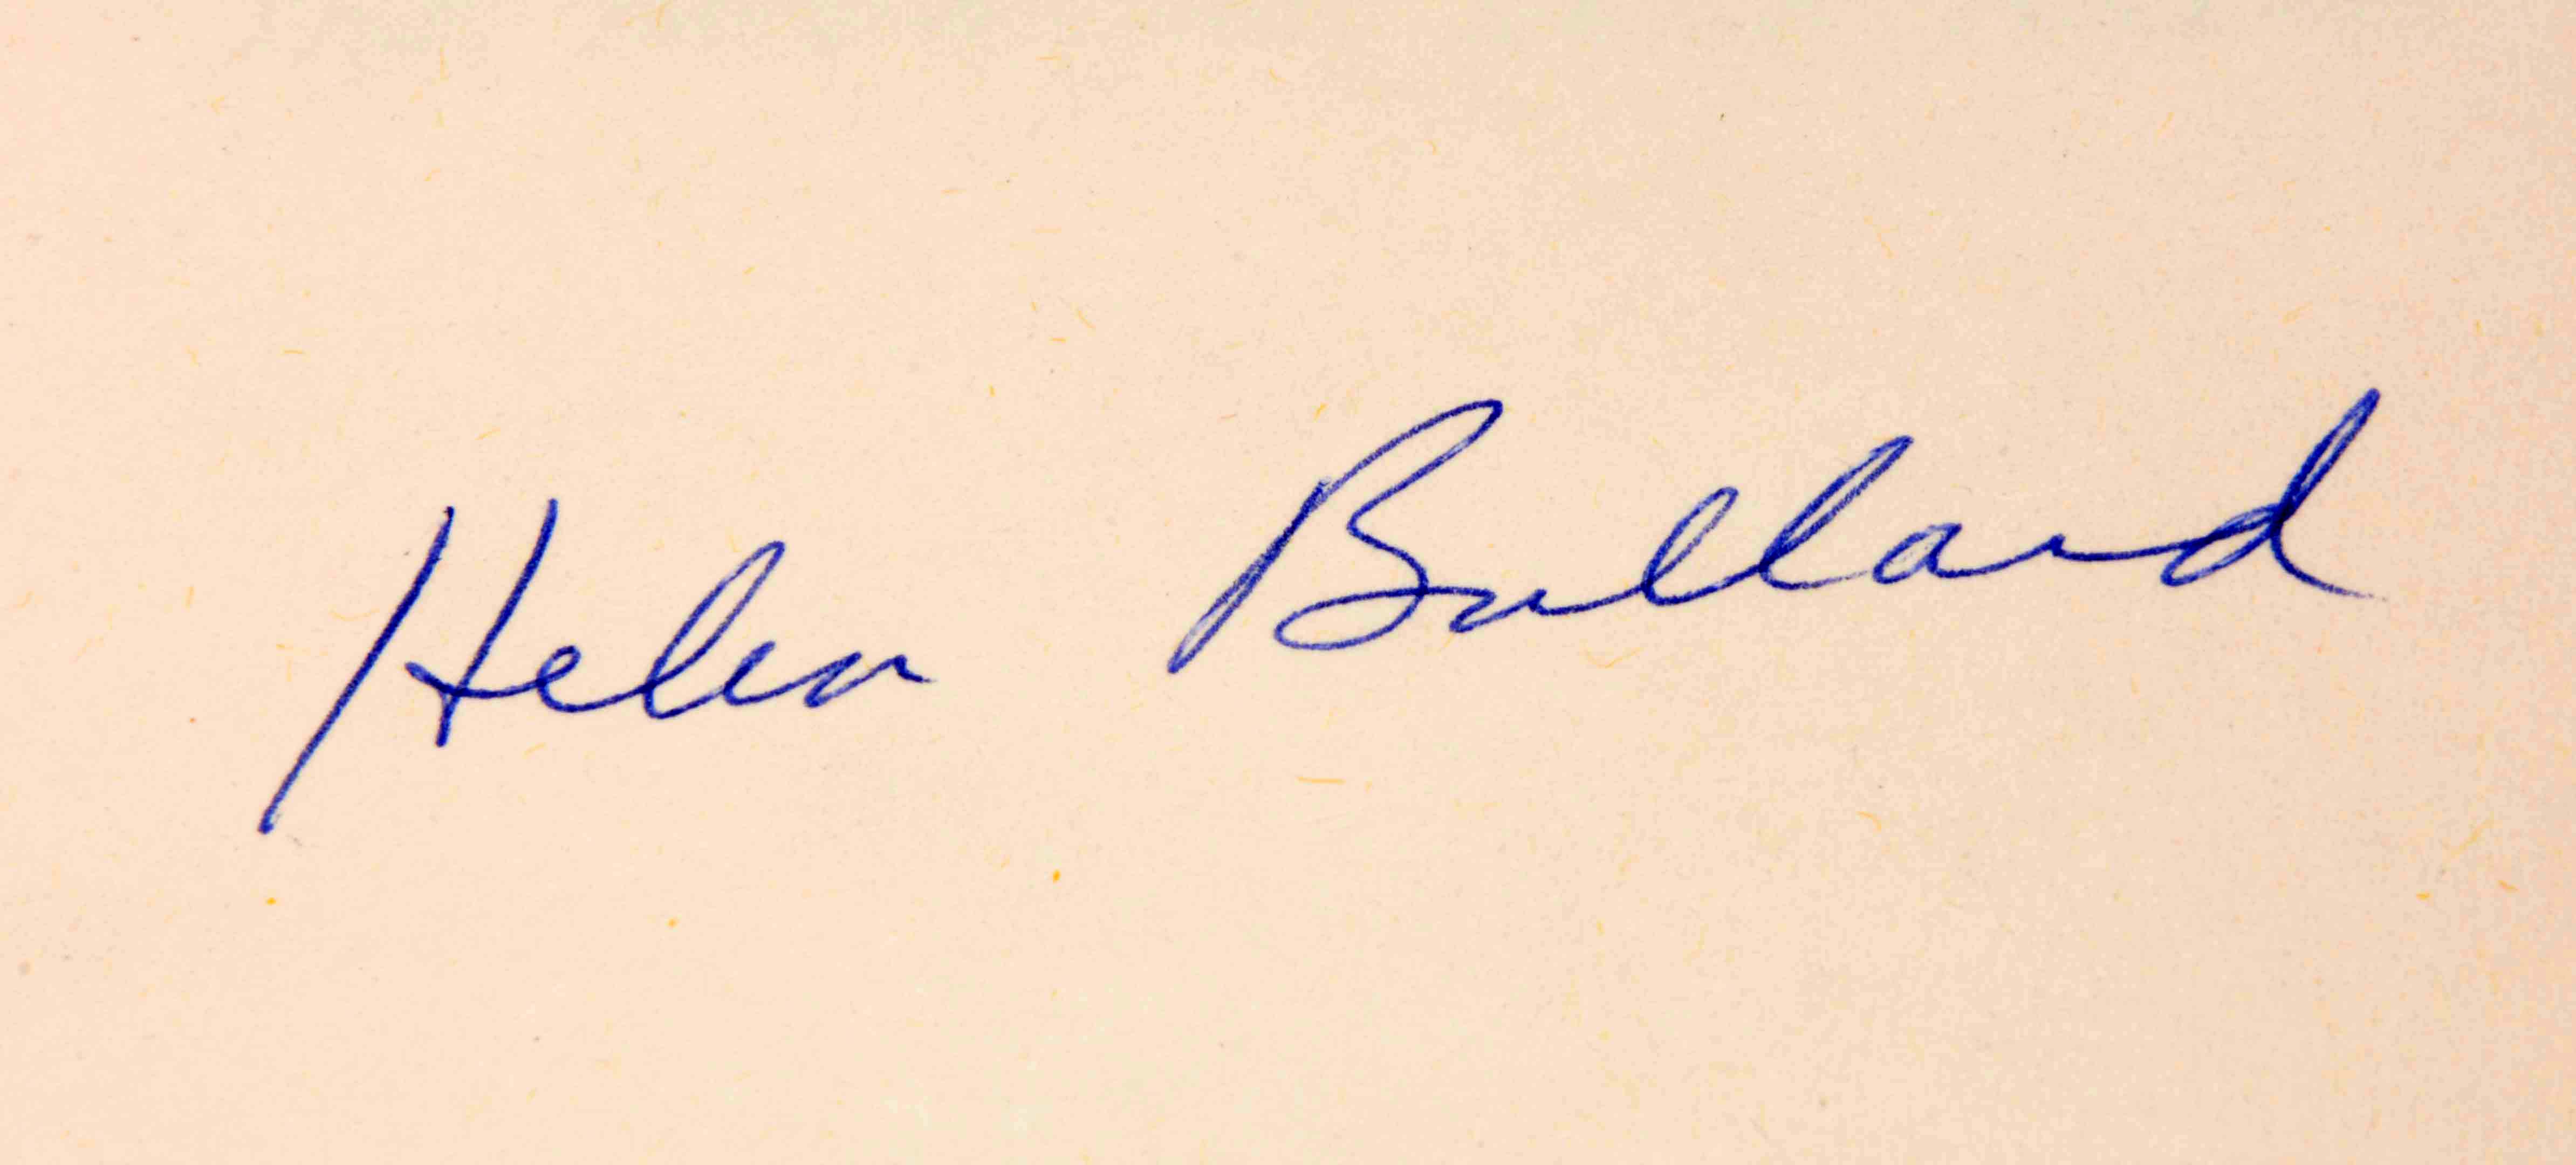 Helen Bullard